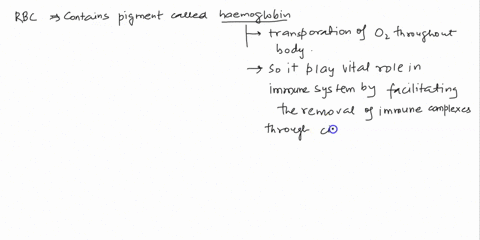 RBC ⇒ Contains pigment called haemoglobin
→ transporation of O₂ throughout
body.
→ So it play vital role in
immune system by facilitating
the removal of immune complexes
through